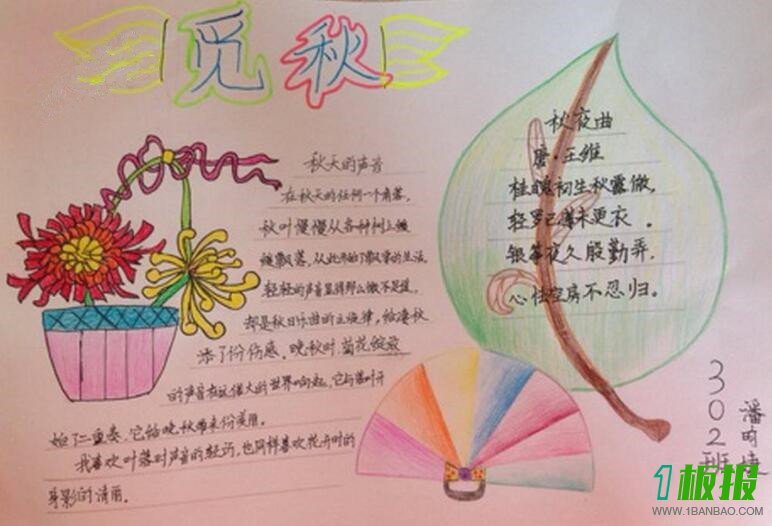 觅秋
秋天的声音
在秋天的任何一个角落,
秋叶慢慢从各种树上缓
缓飘落,从此开始了飘零的生活,
轻轻的声音显得那么微不足道,
却是秋日乐曲的主旋律,给凄秋
添了份伤感。晚秋时 菊花绽放
的声音在这偌大的世界响起,它与落叶开
始了二重奏。它给晚秋带来份美丽。
我喜欢叶落时声音的轻巧,也同样喜欢花开时的
身影的清丽。
秋夜曲
唐·王维
桂魄初生秋露微,
轻罗已薄未更衣。
银筝夜久殷勤弄,
心怯空房不忍归。
302班
潘
1板报
WWW.1BANBAO.COM